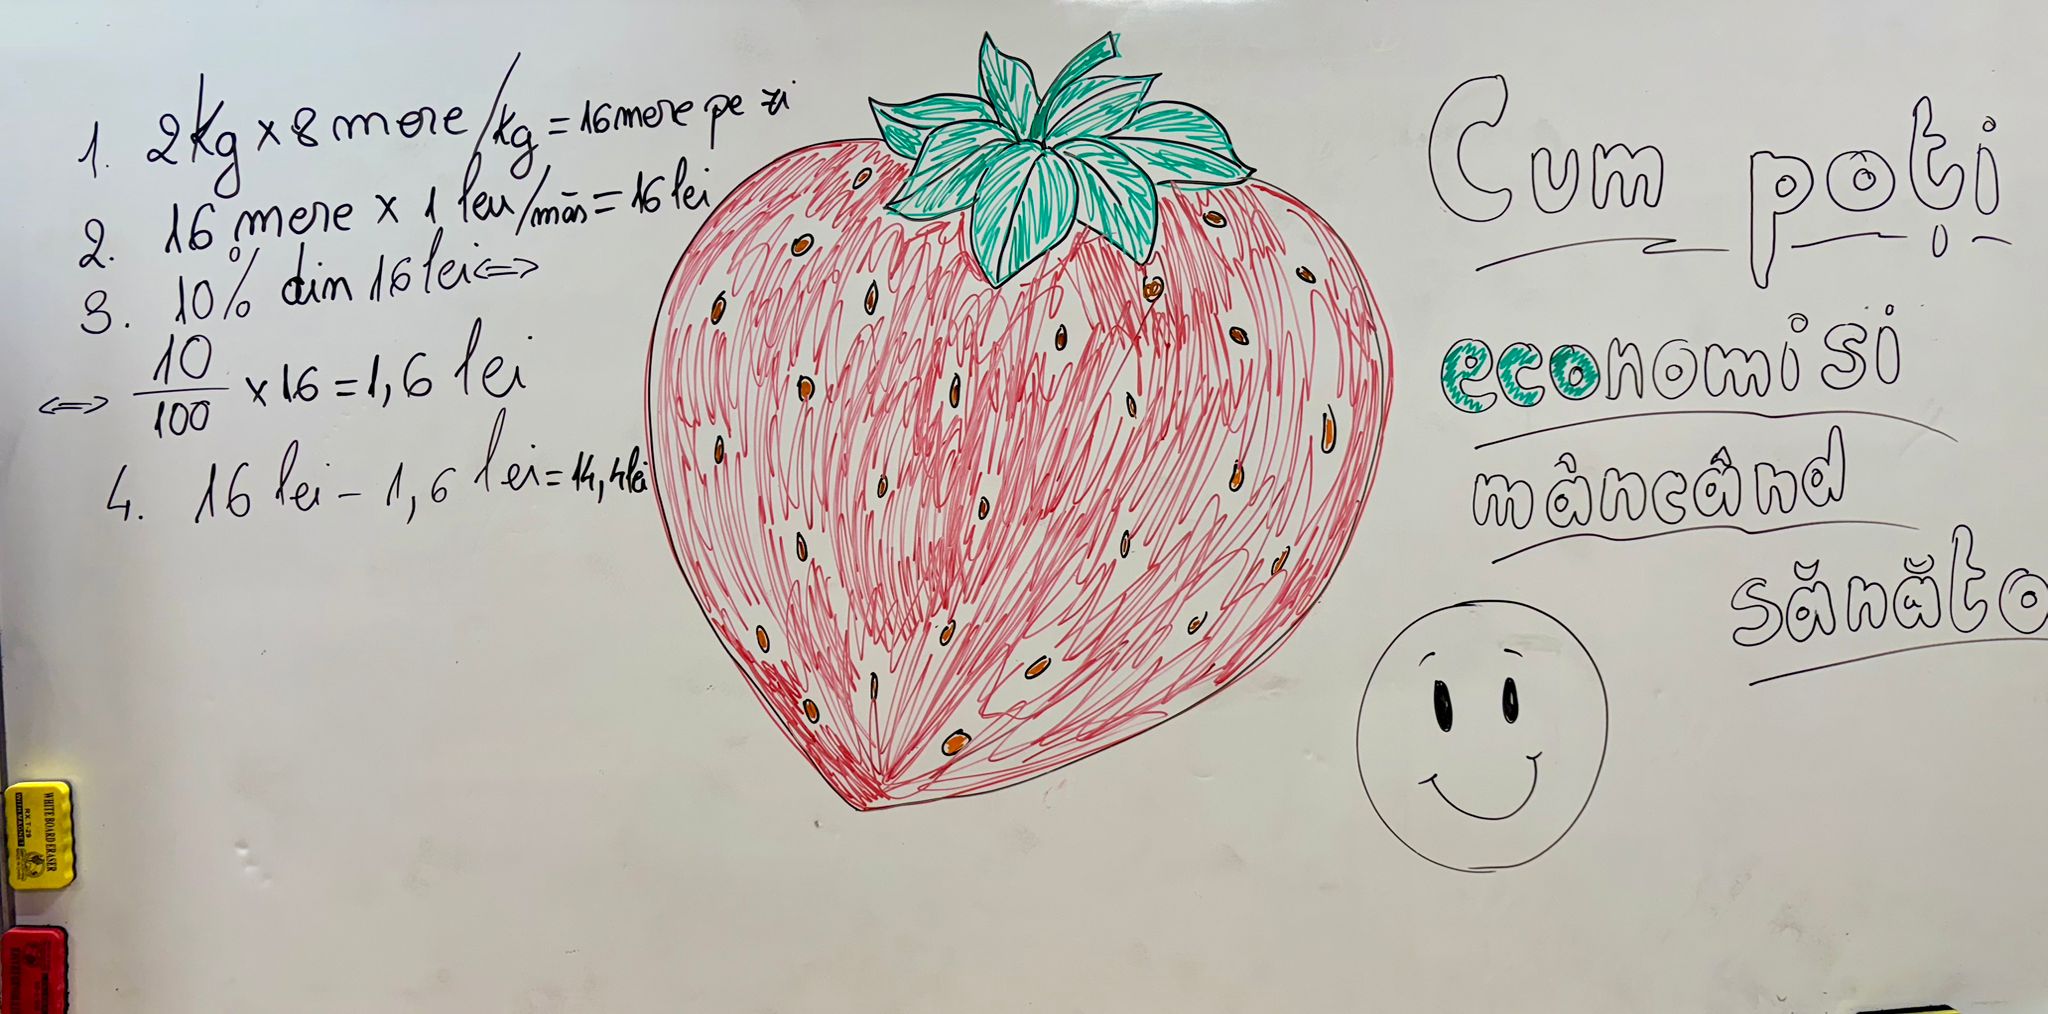 1. 2kg x 8 mere/kg = 16 mere pe zi
2. 16 mere x 1 leu/măr = 16 lei
3. 10% din 16 lei <=>
<=> 10/100 x 16 = 1,6 lei
4. 16 lei - 1,6 lei = 14,4 lei
Cum poți
economisi
mâncând
sănăto
WHITE BOARD ERASER
RX T-29